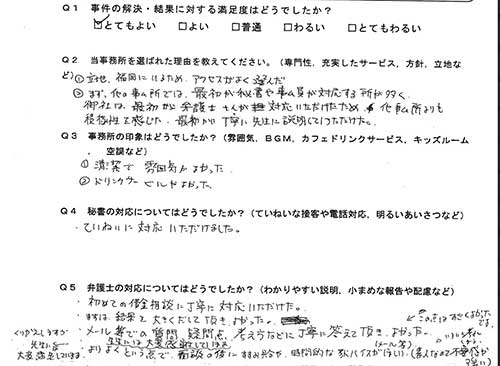 Q1 事件の解決・結果に対する満足度はどうでしたか？
☑とてもよい □よい □普通 □わるい □とてもわるい
Q2 当事務所を選ばれた理由を教えてください。（専門性，充実したサービス，方針，立地な
ど）①立地、福岡にいるため、アクセスがよく選んだ
②まず、他の事ム所では、最初から秘書や事ム員が対応する所が多く、
御社は、最初から弁護士さんが対応いただけたため 他ム所よりも
積極性を感じた。最初から丁寧に先生に説明していただけた。
Q3 事務所の印象はどうでしたか？（雰囲気，BGM，カフェドリンクサービス，キッズルーム
，空調など）
①清潔で 雰囲気がよかった。
②ドリンクサービスがよかった
Q4 秘書の対応についてはどうでしたか？（ていねいな接客や電話対応，明るいあいさつなど）
・ていねいに対応いただけました。
Q5 弁護士の対応についてはどうでしたか？（わかりやすい説明，小まめな報告や配慮など）
・初めての 相談に丁寧に対応いただけた。
・まずは結果を大きくだして頂き、よかった。
・メール等での質問、疑問点、考え方などに丁寧に答えて頂き、よかった。
くりかえしますが
先生には
大変満足しています。
よりよくという点で、
時間的な アドバイスがほしい。